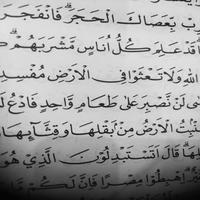 بِّعَصَاكَ الْحَجَرَ ۖ فَانْفَجَر
قَدْ عَلِمَ كُلُّ أُنَاسٍ مَّشْرَبَهُمْ ۖ
اللَّهِ وَلَا تَعْثَوْا فِي الْأَرْضِ مُفْسِد
لَنْ نَّصْبِرَ عَلَىٰ طَعَامٍ وَّاحِدٍ فَادْعُ
تُنْبِتُ الْأَرْضُ مِنْ بَقْلِهَا وَقِثَّائِهَا
هَا ۖ قَالَ أَتَسْتَبْدِلُوْنَ الَّذِي هُوَ
اِهْبِطُوْا مِصْرًا فَإِنَّ لَكُمْ